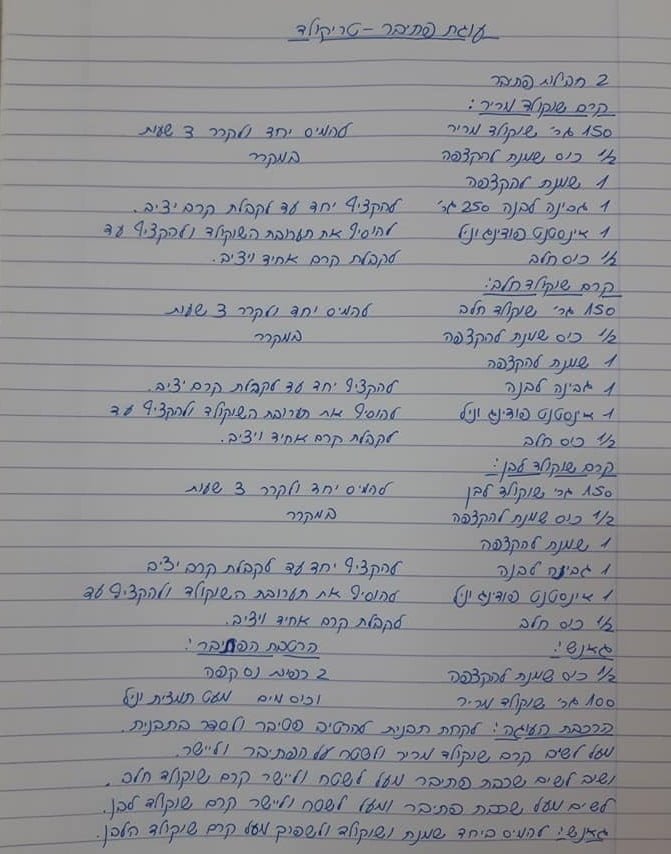 עוגת פתיבר - טריקולד
2 חבילות פתיבר
קרם שוקולד מריר:
150 גר' שוקולד מריר להמיס יחד ולקרר 3 שעות
1/2 כוס שמנת להקצפה במקרר
1 שמנת להקצפה
1 גבינה לבנה 250 גר' להקציף יחד עד לקבלת קרם יציב.
1 אינסטנט פודינג וניל להוסיף את תערובת השוקולד ולהקציף עד
1/2 כוס חלב לקבלת קרם אחיד ויציב.
קרם שוקולד חלב:
150 גר' שוקולד חלב להמיס יחד ולקרר 3 שעות
1/2 כוס שמנת להקצפה במקרר
1 שמנת להקצפה
1 גבינה לבנה להקציף יחד עד לקבלת קרם יציב.
1 אינסטנט פודינג וניל להוסיף את תערובת השוקולד ולהקציף עד
1/2 כוס חלב לקבלת קרם אחיד ויציב.
קרם שוקולד לבן:
150 גר' שוקולד לבן להמיס יחד ולקרר 3 שעות
1/2 כוס שמנת להקצפה במקרר
1 שמנת להקצפה
1 גבינה לבנה להקציף יחד עד לקבלת קרם יציב
1 אינסטנט פודינג וניל להוסיף את תערובת השוקולד ולהקציף עד
1/2 כוס חלב לקבלת קרם אחיד ויציב.
גאנש: הרטבת הפתיבר:
1/2 כוס שמנת להקצפה 2 כפיות נס קפה
100 גר' שוקולד מריר וכוס מים מעט תמצית וניל
הרכבת העוגה: לקחת תבנית להרטיב פטיבר ולסדר בתבנית.
מעל לשים קרם שוקולד מריר ולשטח על הפתיבר וליישר.
נשיב לשים שכבת פתיבר מעל לשטח וליישר קרם שוקולד חלב.
לשים מעל שכבת פתיבר ומעל לשטח וליישר קרם שוקולד לבן.
גאנש: להמיס ביחד שמנת ושוקולד ולשפוך מעל קרם שוקולד הלבן.